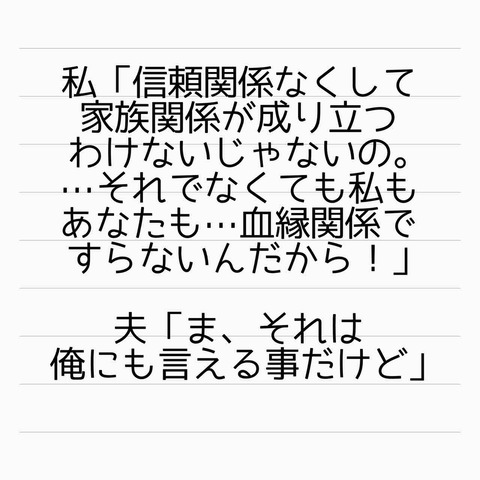 私「信頼関係なくして
家族関係が成り立つ
わけないじゃないの。
…それでなくても私も
あなたも…血縁関係で
すらないんだから！」
夫「ま、それは
俺にも言える事だけど」